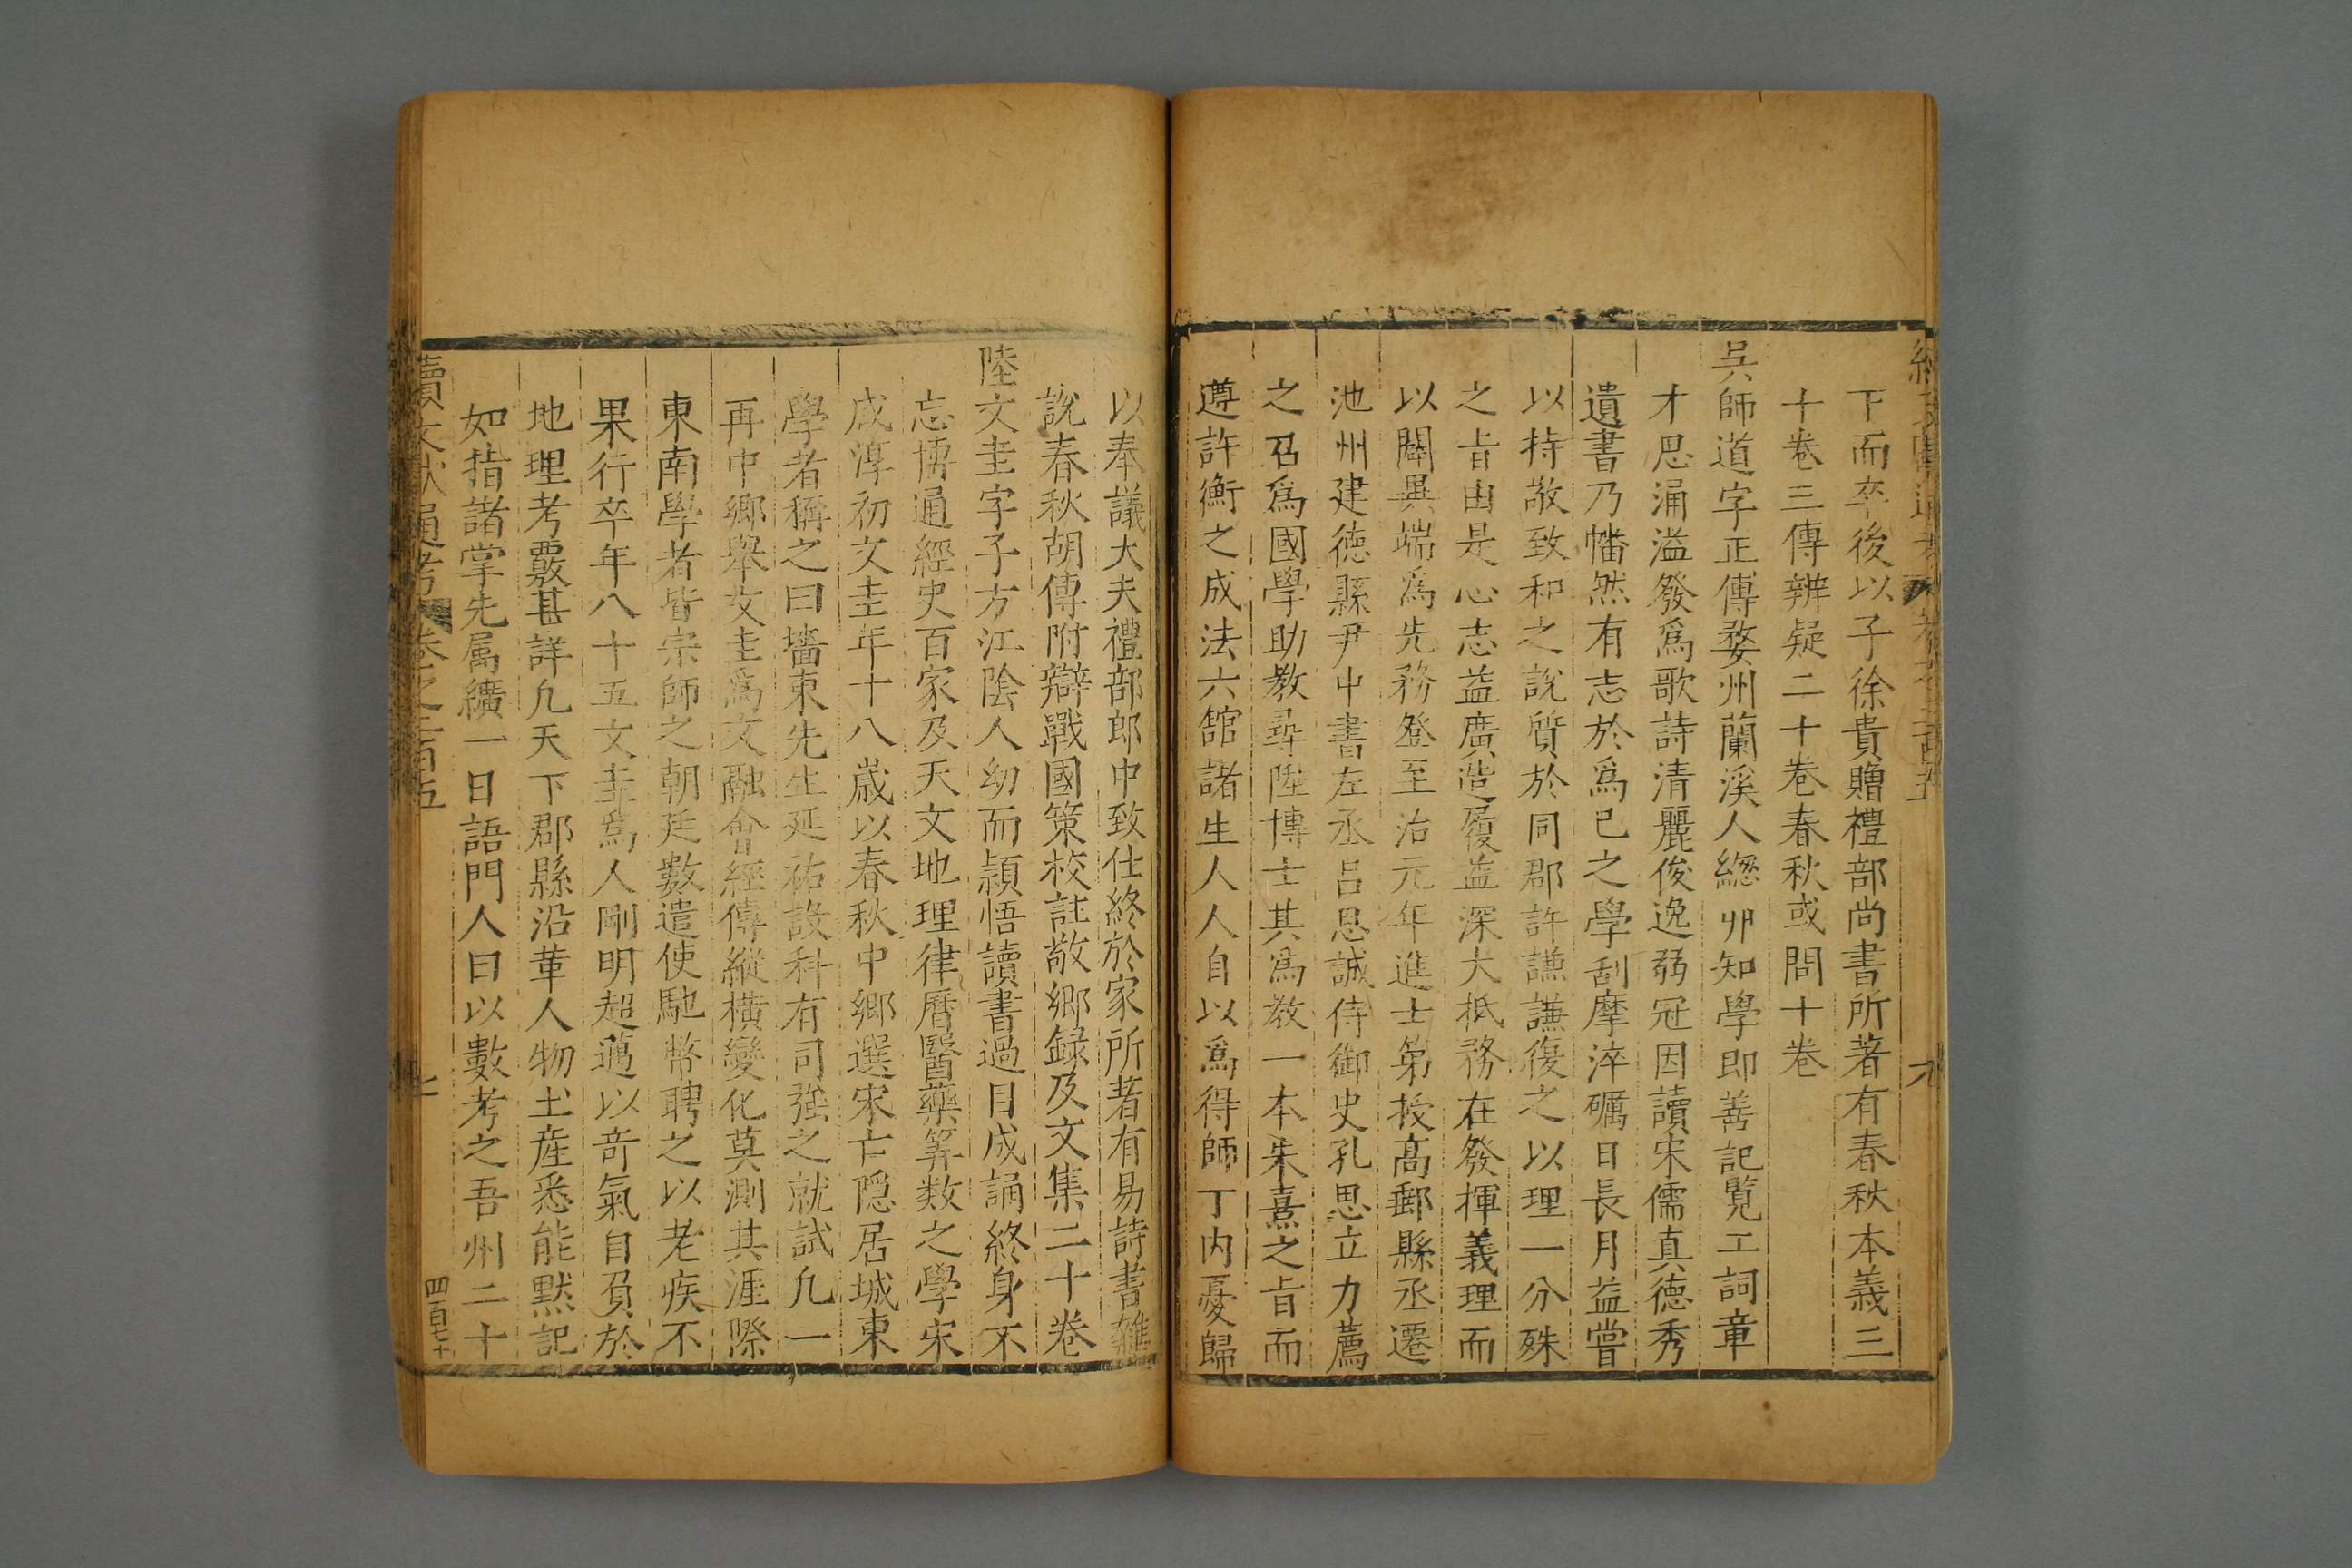 下而卒後以子徐貴贈禮部尚書所著有春秋本義三
十卷三傳辨疑二十卷春秋或問十卷
吴師道字正傳婺州蘭溪人緫丱知學即善記覧工詞章
才思涌溢發爲歌詩清麗俊逸弱冠因讀宋儒真徳秀
遺書乃幡然有志於爲已之學刮摩淬礪日長月益嘗
以持敬致和之說質於同郡許謙謙復之以理一分殊
之旨由是心志益廣造履益深大抵務在發揮義理而
以闢異端爲先務登至治元年進士第授髙郵縣丞遷
池州建徳縣尹中書左丞吕思誠侍御史孔思立力薦
之召爲國學助教尋陞博士其爲教一本朱熹之旨而
遵許衡之成法六舘諸生人人自以爲得師丁内憂歸
以奉議大夫禮部郎中致仕終於家所著有易詩書雜
說春秋胡傳附辯戰國策校註敬鄉録及文集二十卷
陸文圭字子方江陰人幼而頴悟讀書過目成誦終身不
忘博通經史百家及天文地理律曆醫藥筭数之學宋
咸淳初文圭年十八歳以春秋中鄉選宋亡隠居城東
學者稱之曰墻東先生延祐設科有司強之就試凢一
再中鄉舉文圭爲文融會經傳縱横變化莫測其涯際
東南學者皆宗師之朝廷數遣使馳幣聘之以老疾不
果行卒年八十五文圭爲人剛明超邁以竒氣自負於
地理考覈甚詳凢天下郡縣沿革人物土産悉能黙記
如指諸掌先属纊一日語門人曰以數考之吾州二十
續文獻通考 卷之二百五
四百七十